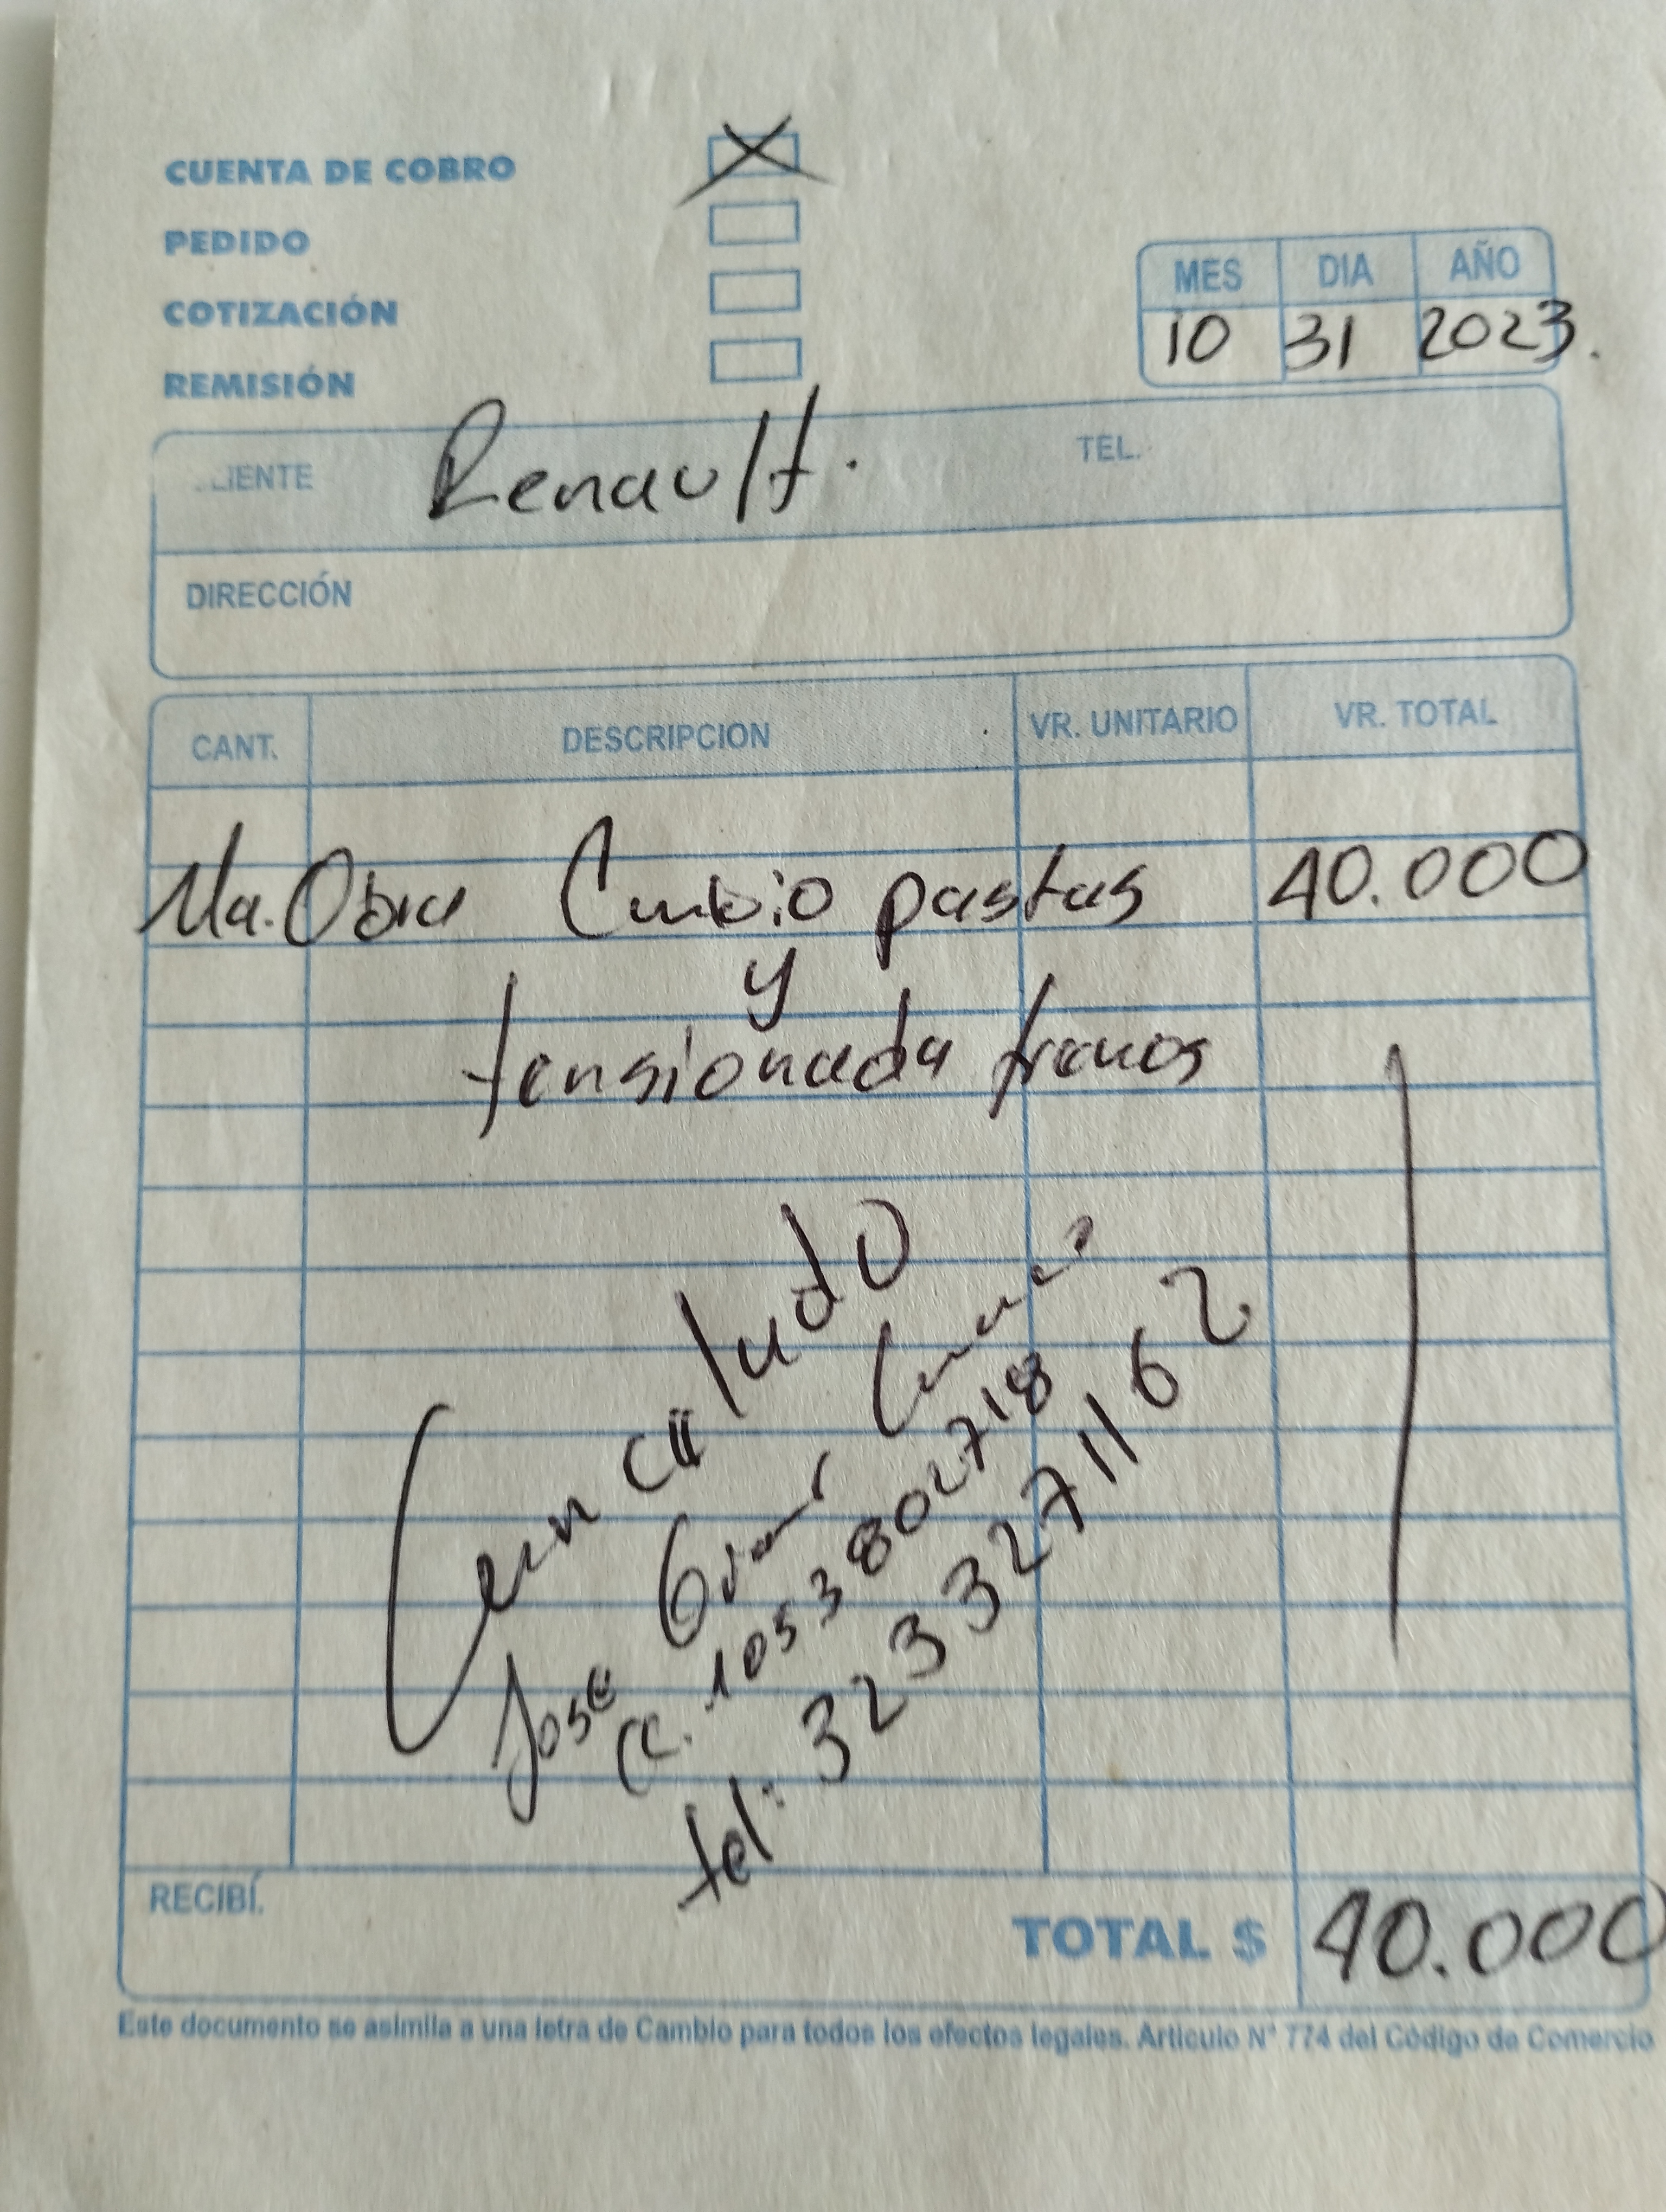 CUENTA DE COBRO
PEDIDO
COTIZACIÓN
REMISIÓN
MES DIA AÑO
10 31 2023.
Renault. TEL.
DIRECCIÓN
CANT. DESCRIPCION VR. UNITARIO VR. TOTAL
Ma. Obra Cambio pastas 40.000
y
tensionada frenos
Cancelado
Jose
CC. 1053802718
tel: 3233271162
RECIBÍ.
TOTAL $ 40.000
Este documento se asimila a una letra de Cambio para todos los efectos legales. Articulo N° 774 del Código de Comercio